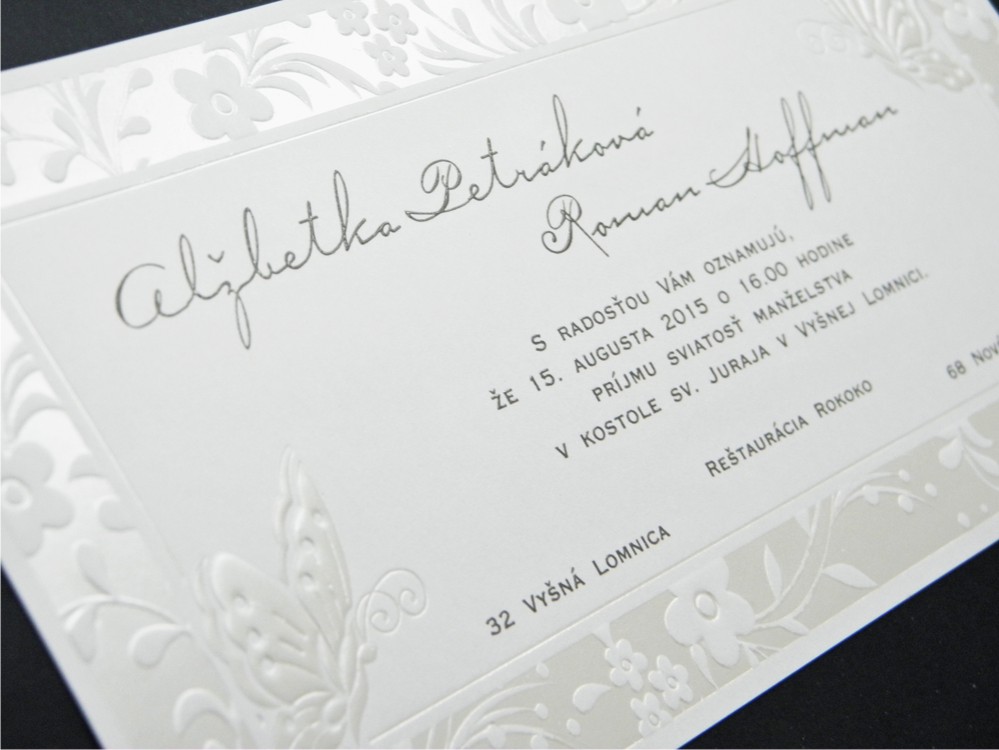 Alžbetka Petráková
Roman Hoffman
S RADOSŤOU VÁM OZNAMUJÚ,
ŽE 15. AUGUSTA 2015 O 16.00 HODINE
PRÍJMU SVIATOSŤ MANŽELSTVA
V KOSTOLE SV. JURAJA V VYŠNEJ LOMNICI.
REŠTAURÁCIA ROKOKO
32 VYŠNÁ LOMNICA
68